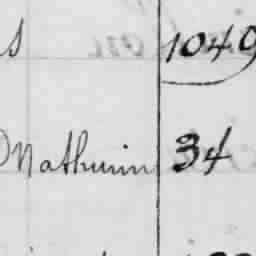 s 1049
Mathurin 34